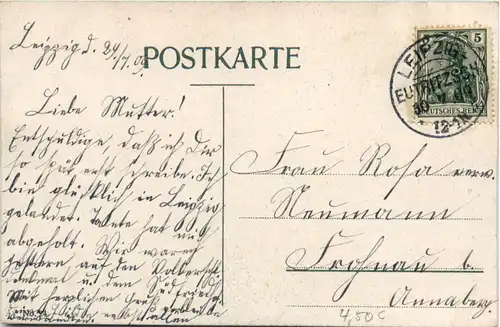 Leipzig d. 29/7. 09
POSTKARTE
5
LEIPZIG
EUTRITZSCH
12-1N
DEUTSCHES REICH
Liebe Mutter!
Entschuldige daß ich Dir
so spät erst schreibe. Ich
bin glücklich in Leipzig
gelandet. Tante hat mich
abgeholt. Wir waren
gestern auf den Völkerschl
und dem Süd Friedh
Mit herzlichen Gruß
Frau Rosa verw.
Neumann
Frohnau b.
Annaberg
4,50 €